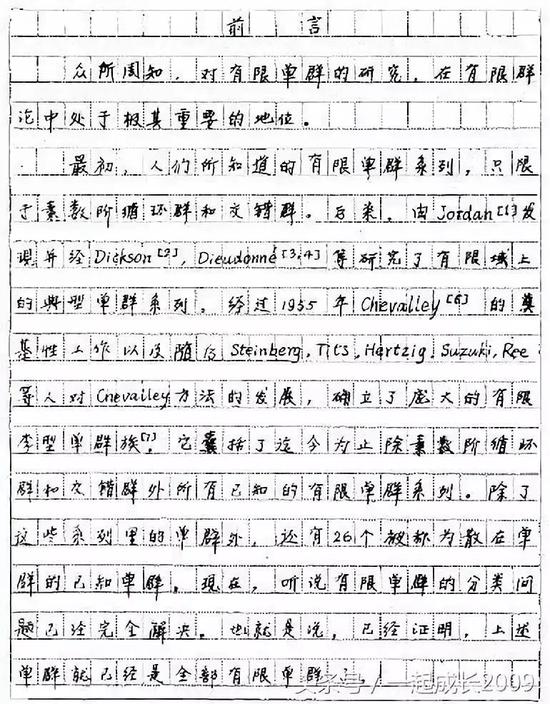 前 言
众所周知，对有限单群的研究，在有限群
论中处于极其重要的地位。
最初，人们所知道的有限单群系列，只限
于素数阶循环群和交错群。后来，由Jordan[1]发
现并经Dickson[2]，Dieudonné[3,4]等研究了有限域上
的典型单群系列。经过1955年Chevalley[6]的奠
基性工作以及随后Steinberg，Tits，Hertzig，Suzuki，Ree
等人对Chevalley方法的发展，确立了庞大的有限
李型单群族[7]。它囊括了迄今为止除素数阶循环
群和交错群外所有已知的有限单群系列。除了
这些系列里的单群外，还有26个被称为散在单
群的已知单群。现在，听说有限单群的分类问
题已经完全解决。也就是说，已经证明，上述
单群就已经是全部有限单群。
头条号/一起成长2009